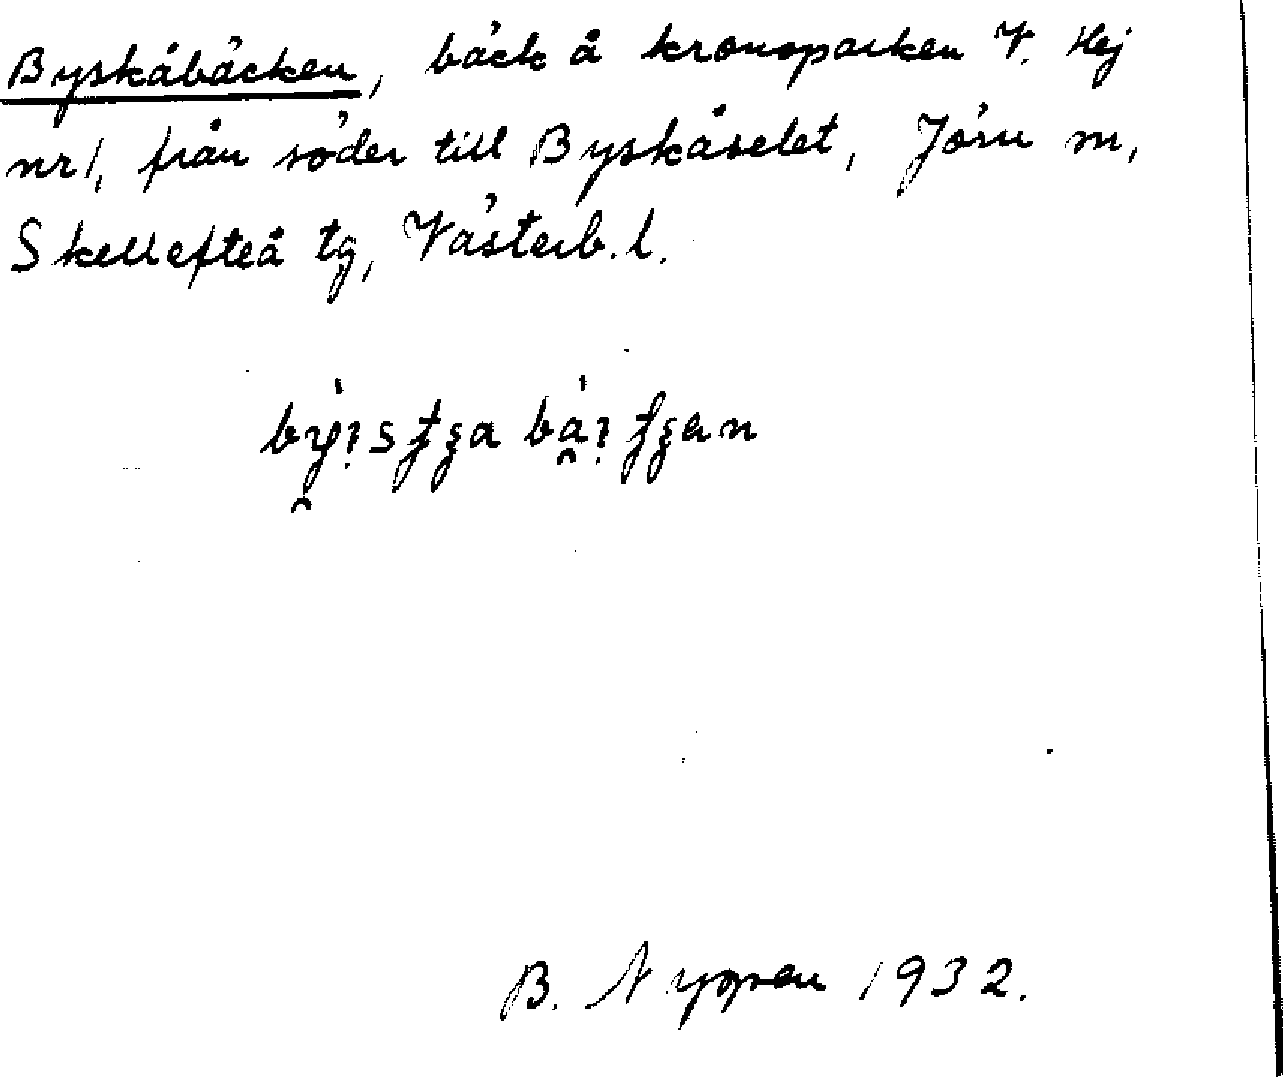 Byskåbäcken, bäck å kronoparken V. Hej
nr 1, från söder till Byskåselet, Jörn m,
Skellefteå tg, Västerb. l.
B. Nygren 1932.